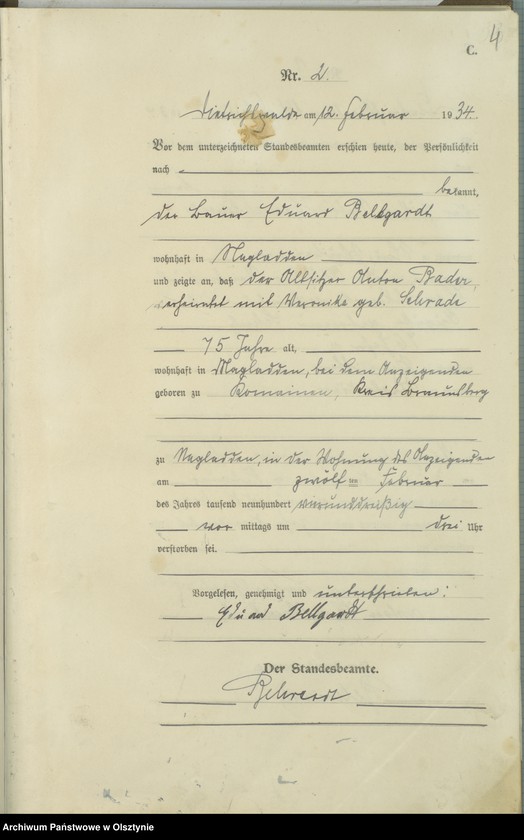 4
C.
Nr. 2.
Dietrichswalde am 12. Februar 1934.
Vor dem unterzeichneten Standesbeamten erschien heute, der Persönlichkeit
nach
bekannt,
der Bauer Eduard Bellgardt
wohnhaft in Nagladden
und zeigte an, daß der Altsitzer Anton Bader,
verheiratet mit Veronika geb. Schrade
75 Jahre alt,
wohnhaft in Nagladden, bei dem Anzeigenden
geboren zu Komainen, Kreis Braunsberg
zu Nagladden, in der Wohnung des Anzeigenden
am zwölften Februar
des Jahres tausend neunhundert vierunddreißig
vor mittags um drei Uhr
verstorben sei.
Vorgelesen, genehmigt und unterschrieben:
Eduard Bellgardt
Der Standesbeamte.
Archiwum Państwowe w Olsztynie